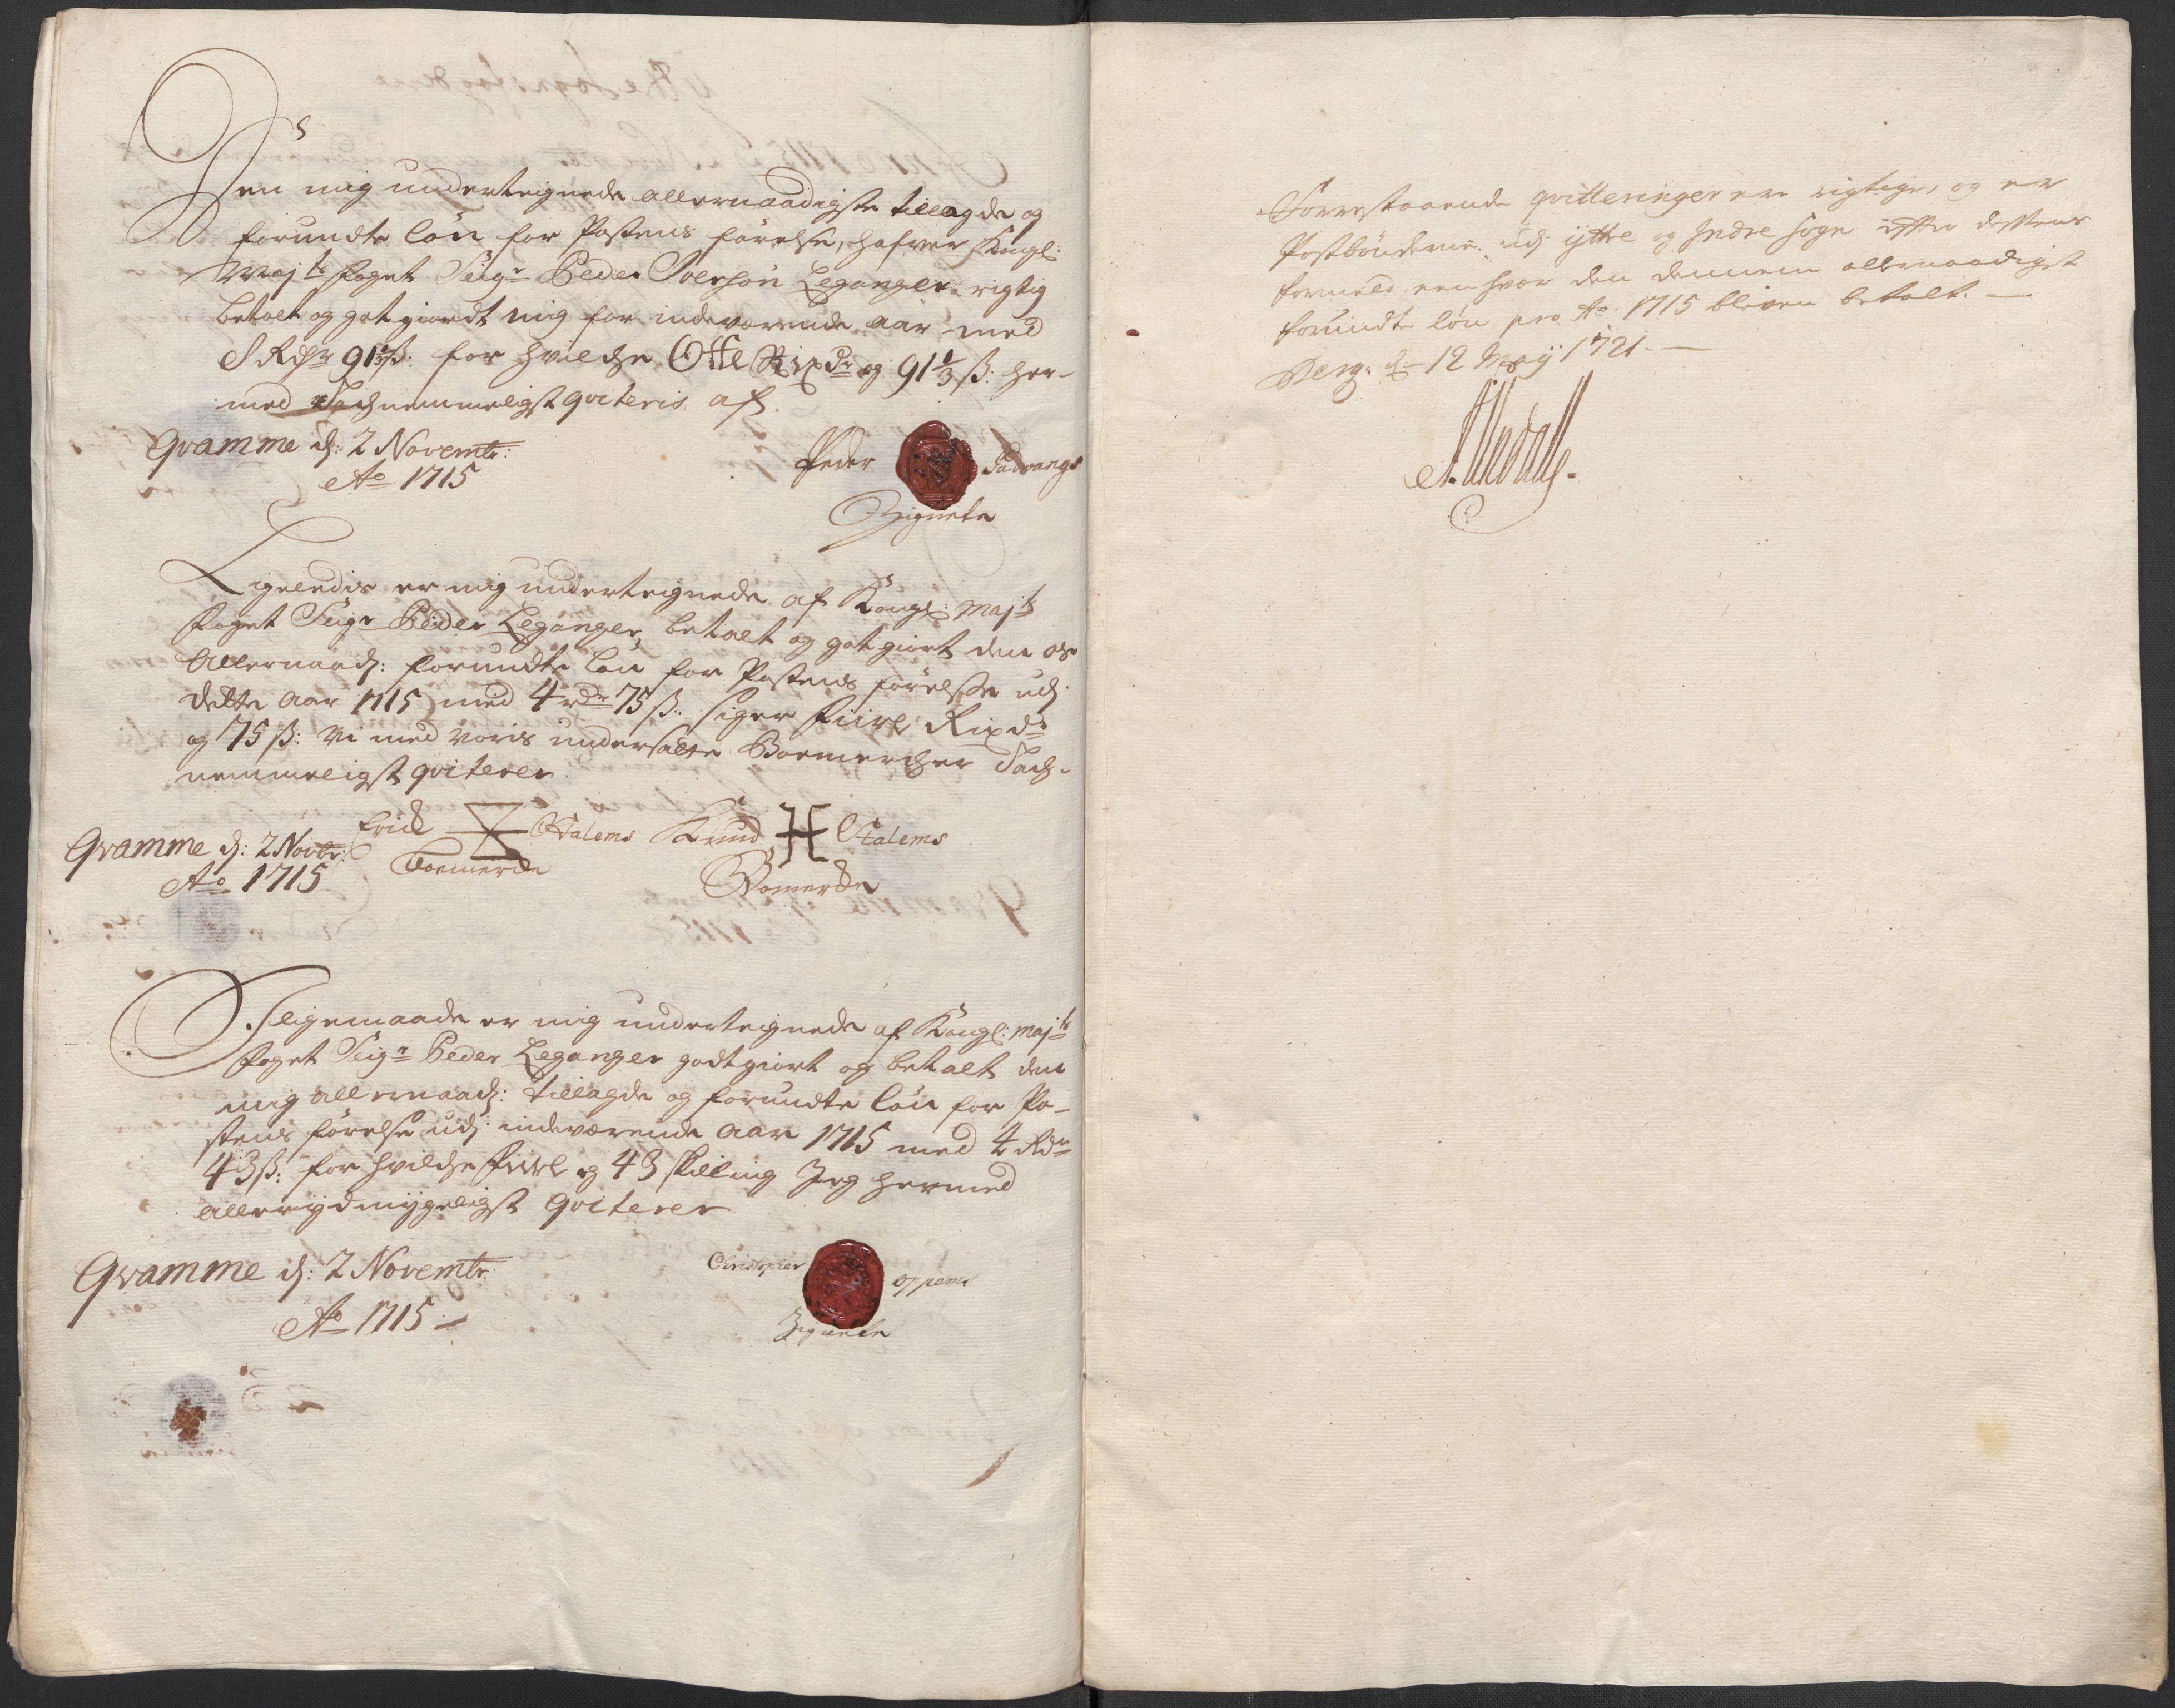 Den mig underteignede allernaadigste tillagde og
forundte løn for Postens førelse, hafver Kongl:
Maj.ts foget Seig.r Peder Iversøn Leganger rigtig
betalt og gotgiordt mig for indeværende aar med
8 Rdr 91⅓ ß: for hvilche Otte Rixdr og 91⅓ ß: her-
med Tachnemmeligst qviteris af
Qvamme d: 2 Novembr:
Ao 1715
Peder Ladvangs
Zignete
Ligeledis er mig underteignede af Kongl: Maj.ts
foget Seigr Peder Leganger, betalt og gotgiort den os
Allernaad: forundte løn for Postens førelsse udj
dette aar 1715 med 4 rdr 75 ß: siger fiire Rixdr
og 75 ß: vi med voris undersatte Boemercher Tach-
nemmeligst qviterer
Qvamme d: 2 Novbr:
Ao 1715
Erick Stalems
Boemercke
Knud Stalems
Bomercke
J ligemaade er mig underteignede af Kongl: Maj.ts
foget Seigr Peder Leganger godtgiort og betalt den
mig allernaad: tillagde og forundte løn for Po-
stens førelse udj indeværende aar 1715 med 4 Rdr
43 ß: for hvilche fiire og 43 skilling Jeg hermed
allerydmygeligst qviterer
Qvamme d: 2 Novembr:
Ao 1715
Christopher Oppems
Zignete
Forrestaaende qvitteringer ere rigtige, og er
Postbønderne udj yttre og Indre Sogn efter dessens
formeld, een hver den dennem allernaadigst
forundte løn pro Ao 1715 bleven betalt.
Berg: d: 12 Maÿ 1721